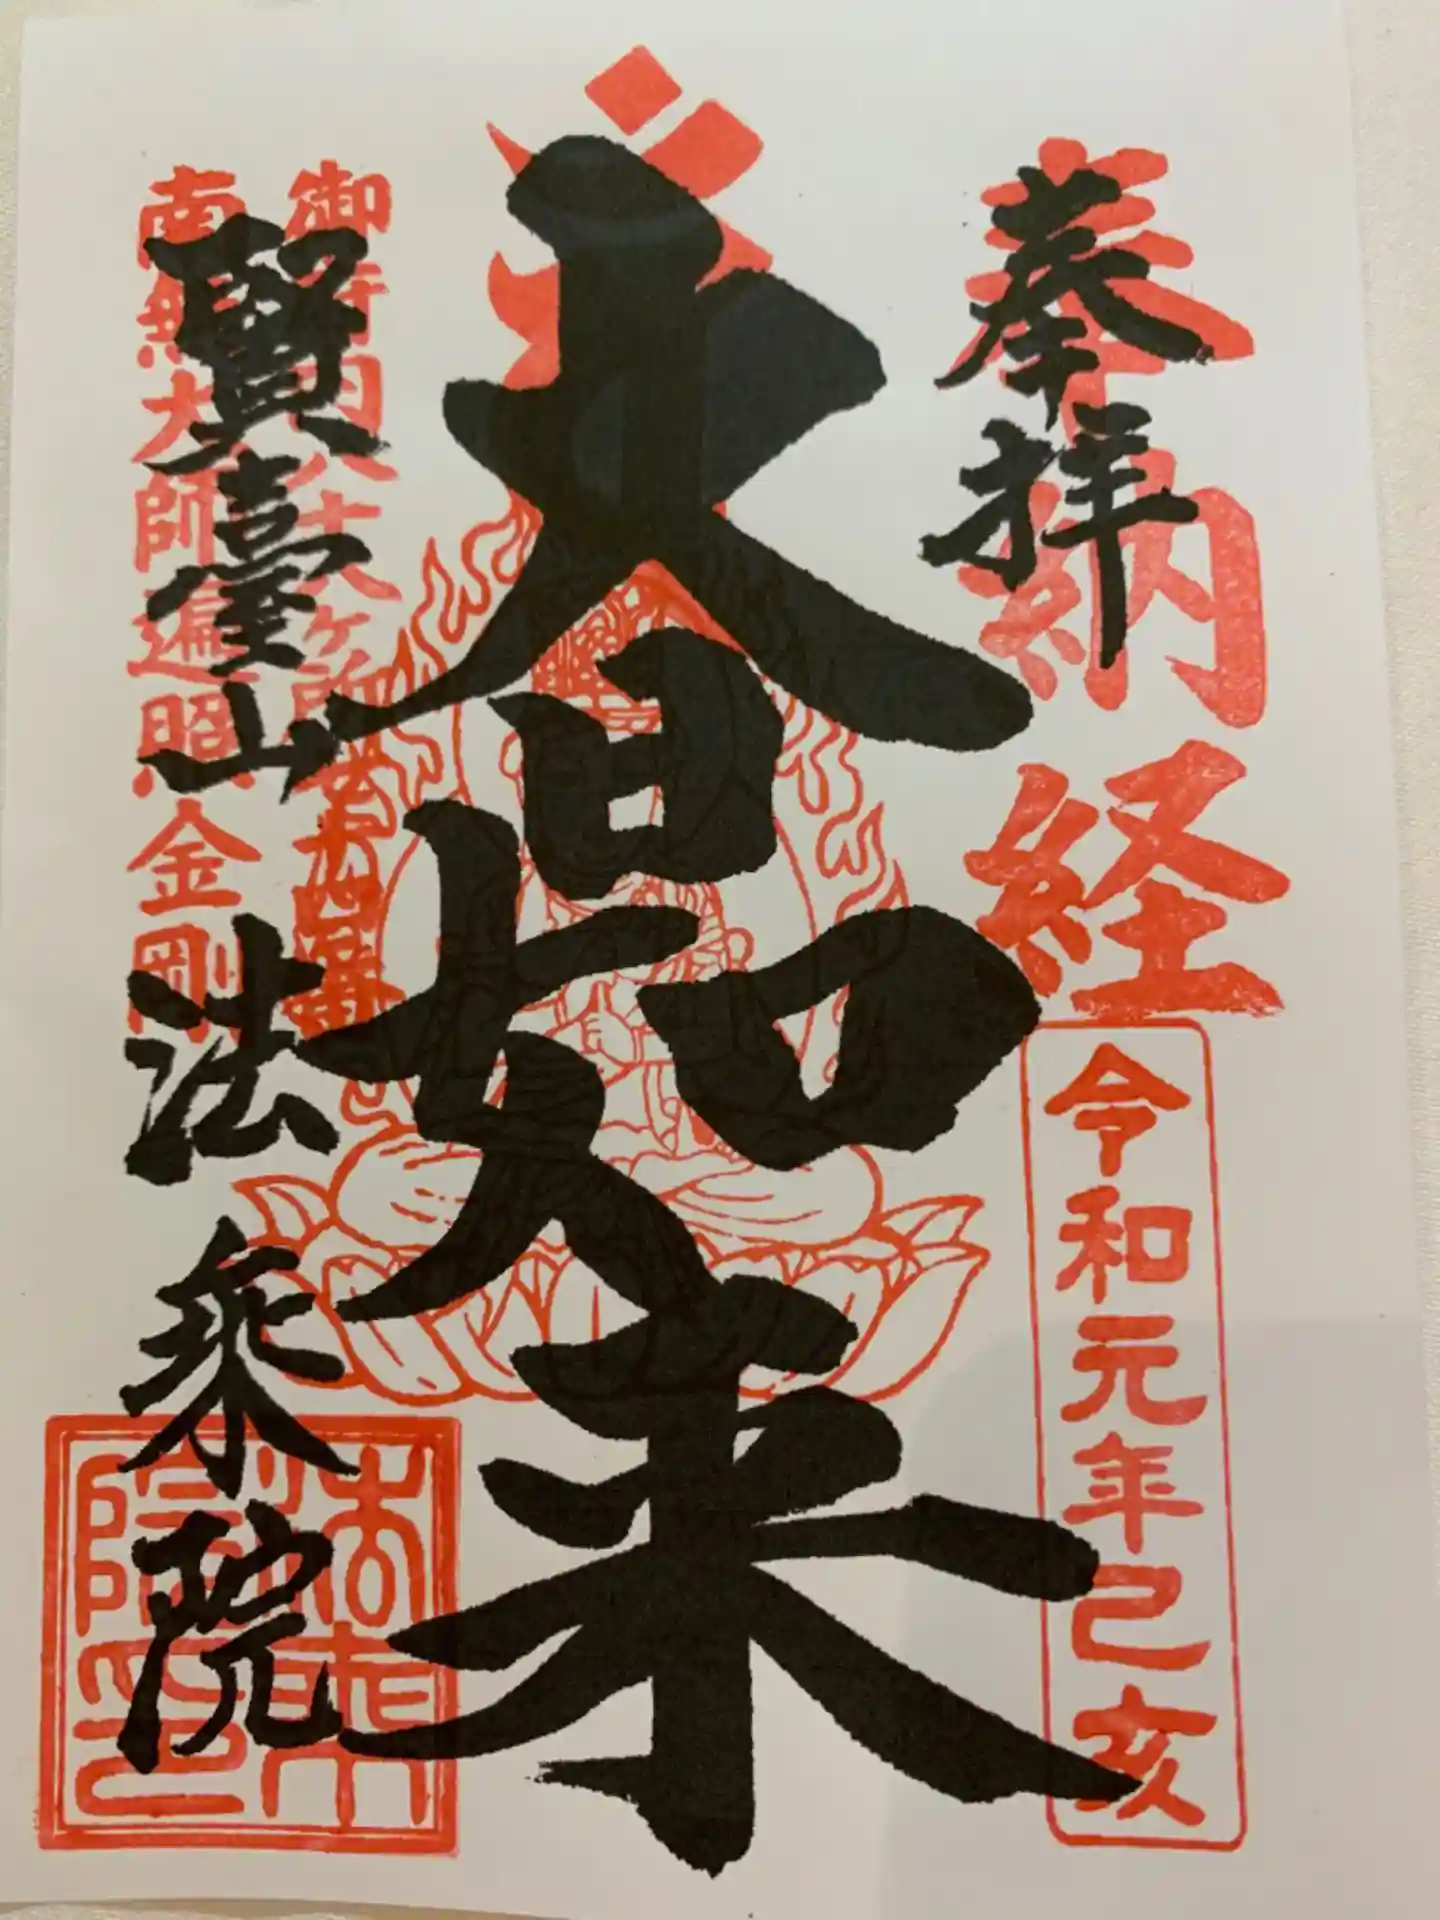 奉拝
奉納経
令和元年己亥
大日如来
御府内八十八ヶ所
南無大師遍照金剛
賢臺山 法乗院